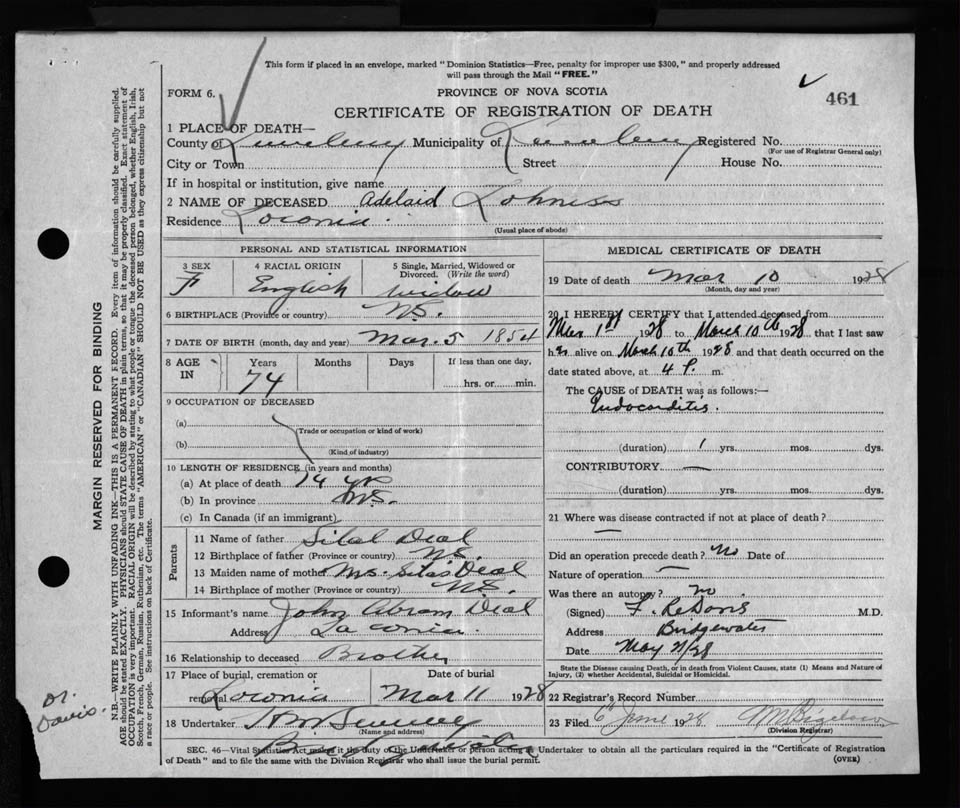 This form if placed in an envelope, marked "Dominion Statistics—Free, penalty for improper use $300," and properly addressed
will pass through the Mail "FREE."
FORM 6.
PROVINCE OF NOVA SCOTIA
461
CERTIFICATE OF REGISTRATION OF DEATH
1 PLACE OF DEATH—
County of Lunenburg Municipality of Lunenburg Registered No.
(For use of Registrar General only)
City or Town Street House No.
If in hospital or institution, give name
2 NAME OF DECEASED Adelaid Lohniss
Residence
(Usual place of abode)
PERSONAL AND STATISTICAL INFORMATION
3 SEX F
4 RACIAL ORIGIN English
5 Single, Married, Widowed or Divorced. (Write the word) widow
6 BIRTHPLACE (Province or country) N.S.
7 DATE OF BIRTH (month, day and year) Mar. 5 1854
8 AGE IN Years 74 Months Days If less than one day, hrs. or min.
9 OCCUPATION OF DECEASED
(a)
(Trade or occupation or kind of work)
(b)
(Kind of industry)
10 LENGTH OF RESIDENCE (in years and months)
(a) At place of death 74 yrs
(b) In province N.S.
(c) In Canada (if an immigrant)
Parents
11 Name of father Deal
12 Birthplace of father (Province or country) N.S.
13 Maiden name of mother Mrs. Silas Deal
14 Birthplace of mother (Province or country) N.S.
15 Informant's name John Abram Deal
Address La conia.
16 Relationship to deceased Brother
17 Place of burial, cremation or removal Date of burial
Mar 11 1928
18 Undertaker
(Name and address)
MEDICAL CERTIFICATE OF DEATH
19 Date of death Mar 10 1928
(Month, day and year)
20 I HEREBY CERTIFY that I attended deceased from
Mar 1st 1928 to March 10th 1928 that I last saw
her alive on March 10th 1928 and that death occurred on
date stated above, at 4 P. m.
The CAUSE of DEATH was as follows:—
Endocarditis.
(duration) 1 yrs. mos. dys.
CONTRIBUTORY —
(duration) yrs. mos. dys.
21 Where was disease contracted if not at place of death?
—
Did an operation precede death? No Date of
Nature of operation —
Was there an autopsy? no.
(Signed) M.D.
Address Bridgewater
Date May 2/28
State the Disease causing Death, or in death from Violent Causes, state (1) Means and Nature of
Injury, (2) whether Accidental, Suicidal or Homicidal.
22 Registrar's Record Number
23 Filed 6th June 1928 Bigelow
(Division Registrar)
SEC. 46—Vital Statistics Act makes it the duty of the Undertaker or person acting as Undertaker to obtain all the particulars required in the "Certificate of Registration
of Death" and to file the same with the Division Registrar who shall issue the burial permit.
(OVER)
MARGIN RESERVED FOR BINDING
N.B.—WRITE PLAINLY WITH UNFADING INK—THIS IS A PERMANENT RECORD. Every item of information should be carefully supplied.
AGE should be stated EXACTLY. PHYSICIANS should STATE CAUSE OF DEATH in plain terms, so that it may be properly classified. Exact statement of
OCCUPATION is very important. RACIAL ORIGIN will be described by stating to what people or tongue the deceased person belonged, whether English, Irish,
Scotch, French, German, Russian, Ruthenian, etc. The terms "AMERICAN" or "CANADIAN" SHOULD NOT BE USED as they express citizenship but not
a race or people. See instructions on back of Certificate.
Dr.
Davis.